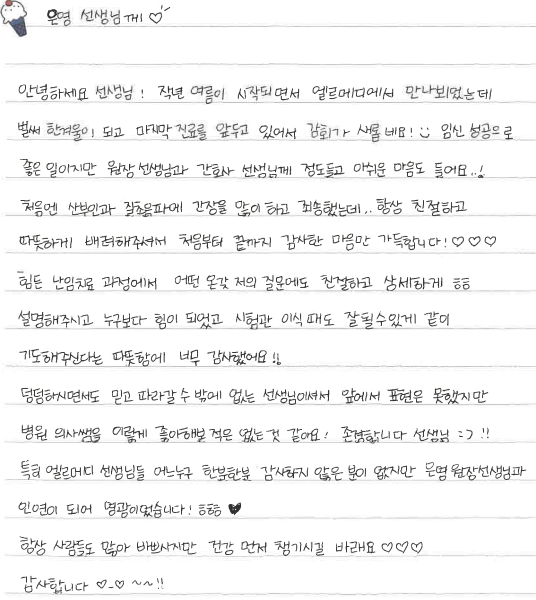 은영 선생님께 ♡
안녕하세요 선생님! 작년 여름이 시작되면서 엘르메디에서 만나뵈었는데
벌써 한겨울이 되고 마지막 진료를 앞두고 있어서 감회가 새롭네요! 임신 성공으로
좋은 일이지만 원장선생님과 간호사 선생님께 정도들고 아쉬운 마음도 들어요..!
처음엔 산부인과 질초음파에 긴장을 많이 하고 죄송했는데.. 항상 친절하고
따뜻하게 배려해주셔서 처음부터 끝까지 감사한 마음만 가득합니다! ♡♡♡
힘든 난임치료 과정에서 어떤 온갖 저의 질문에도 친절하고 상세하게 ㅎㅎ
설명해주시고 누구보다 힘이 되었고 시험관 이식 때도 잘될수있게 같이
기도해주신다는 따뜻함에 너무 감사했어요!!
덩덤하시면서도 믿고 따라갈 수 밖에 없는 선생님이셔서 앞에서 표현은 못했지만
병원 의사쌤을 이렇게 좋아해본 적은 없는것 같아요! 존경합니다 선생님 :-) !!
특히 엘르메디 선생님들 어느누구 한분한분 감사하지 않은 분이 없지만 은영 원장선생님과
인연이 되어 영광이었습니다! ㅎㅎㅎ ♥
항상 사람들도 많아 바쁘시지만 건강 먼저 챙기시길 바래요 ♡♡♡
감사합니다 ♡_♡ ~~!!